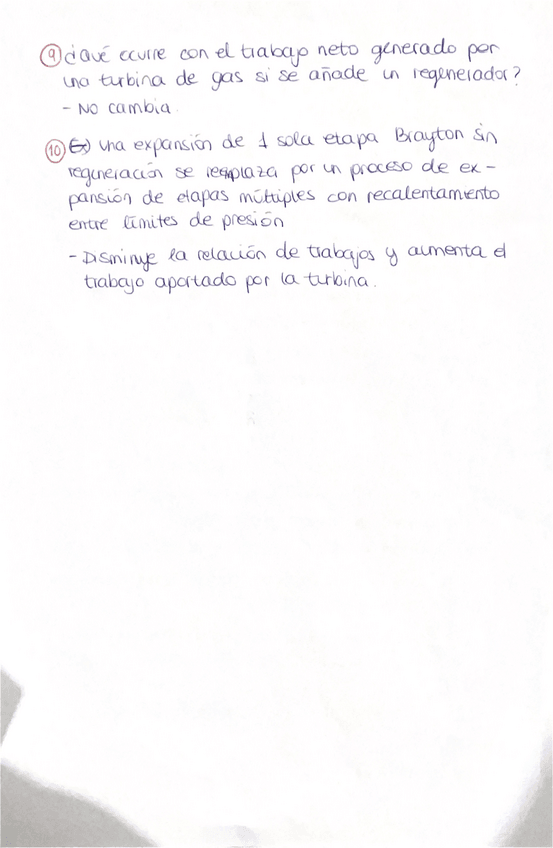 9 ¿Qué ocurre con el trabajo neto generado por
una turbina de gas si se añade un regenerador?
- No cambia.
10 Una expansión de 1 sola etapa Brayton sin
regeneración se reemplaza por un proceso de ex-
pansión de etapas múltiples con recalentamiento
entre límites de presión
- Disminuye la relación de trabajos y aumenta el
trabajo aportado por la turbina.